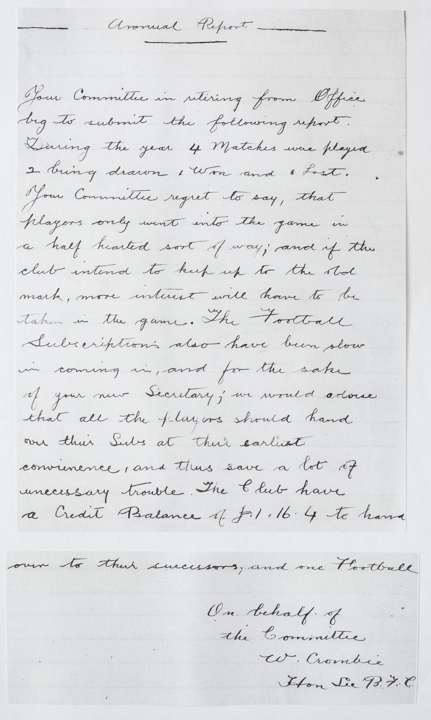 Annual Report
Your Committee in retiring from Office
beg to submit the following report.
During the year 4 Matches were played
2 being drawn 1 Won and 1 Lost.
Your Committee regret to say, that
players only went into the game in
a half hearted sort of way; and if the
club intend to keep up to the old
mark, more interest will have to be
taken in the game. The Football
Subscriptions also have been slow
in coming in, and for the sake
of your new Secretary; we would advise
that all the players should hand
over their Subs at their earliest
convienence, and thus save a lot of
unecessary trouble. The Club have
a Credit Balance of £1.16.4 to hand
over to their successors, and one Football
On behalf of
the Committee
W. Crombie
Hon Sec B.F.C